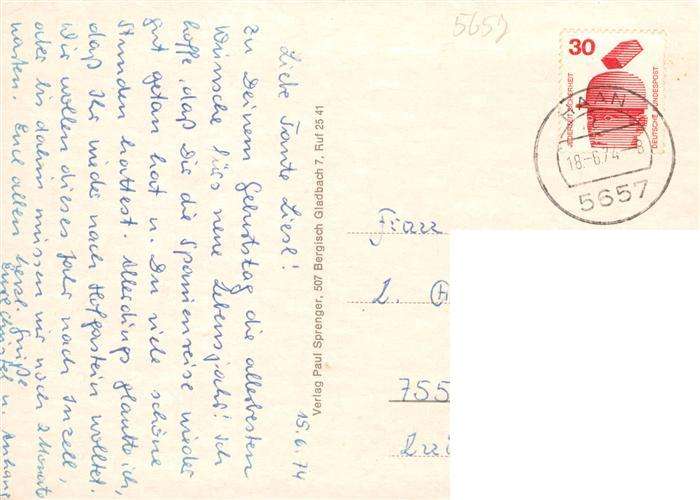 5657
15.6.74
Liebe Tante Liesl!
Zu Deinem Geburtstag die allerbesten
Wünsche fürs neue Lebensjahr! Ich
hoffe, daß Dir die Spanienreise wieder
gut getan hat u. Du viele schöne
Stunden hattest. Allerdings glaubte ich,
daß Ihr wieder nach Hofgastein wolltet.
Wir wollen dieses Jahr nach Inzell,
aber bis dahin müssen wir noch 2 Monate
warten. Euch allen herzl. Grüße
Verlag Paul Sprenger, 507 Bergisch Gladbach 7, Ruf 25 41
30
JEDERZEIT SICHERHEIT
DEUTSCHE BUNDESPOST
HAAN
18.-6.74-8
5657
Frau
L. H
755